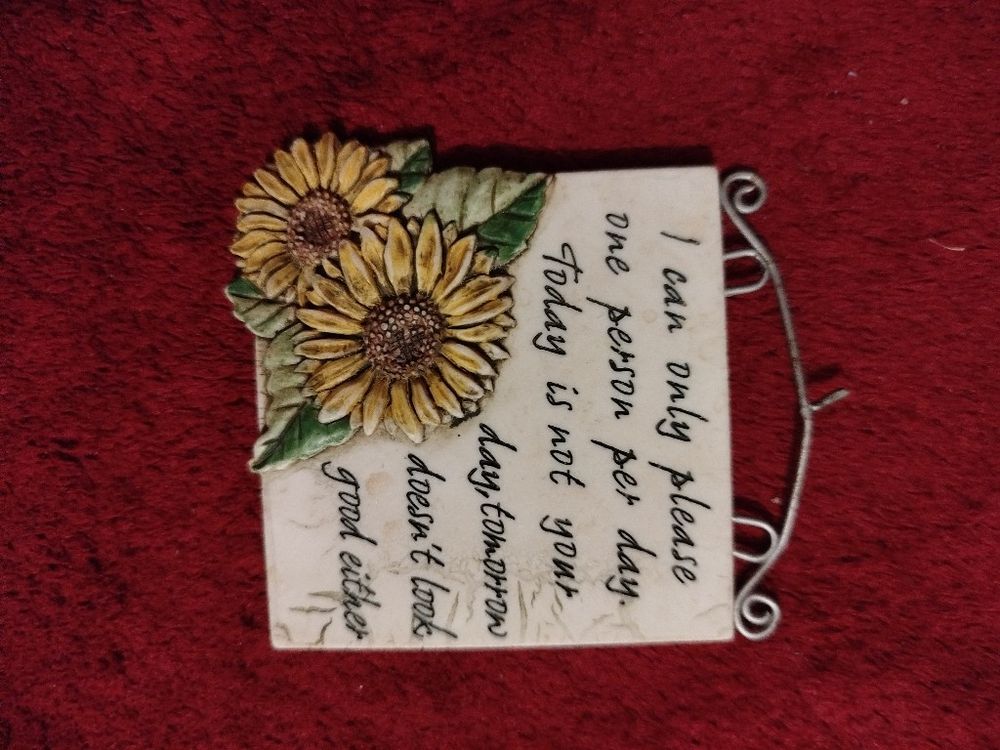 I can only please
one person per day.
Today is not your
day, tomorrow
doesn't look
good either